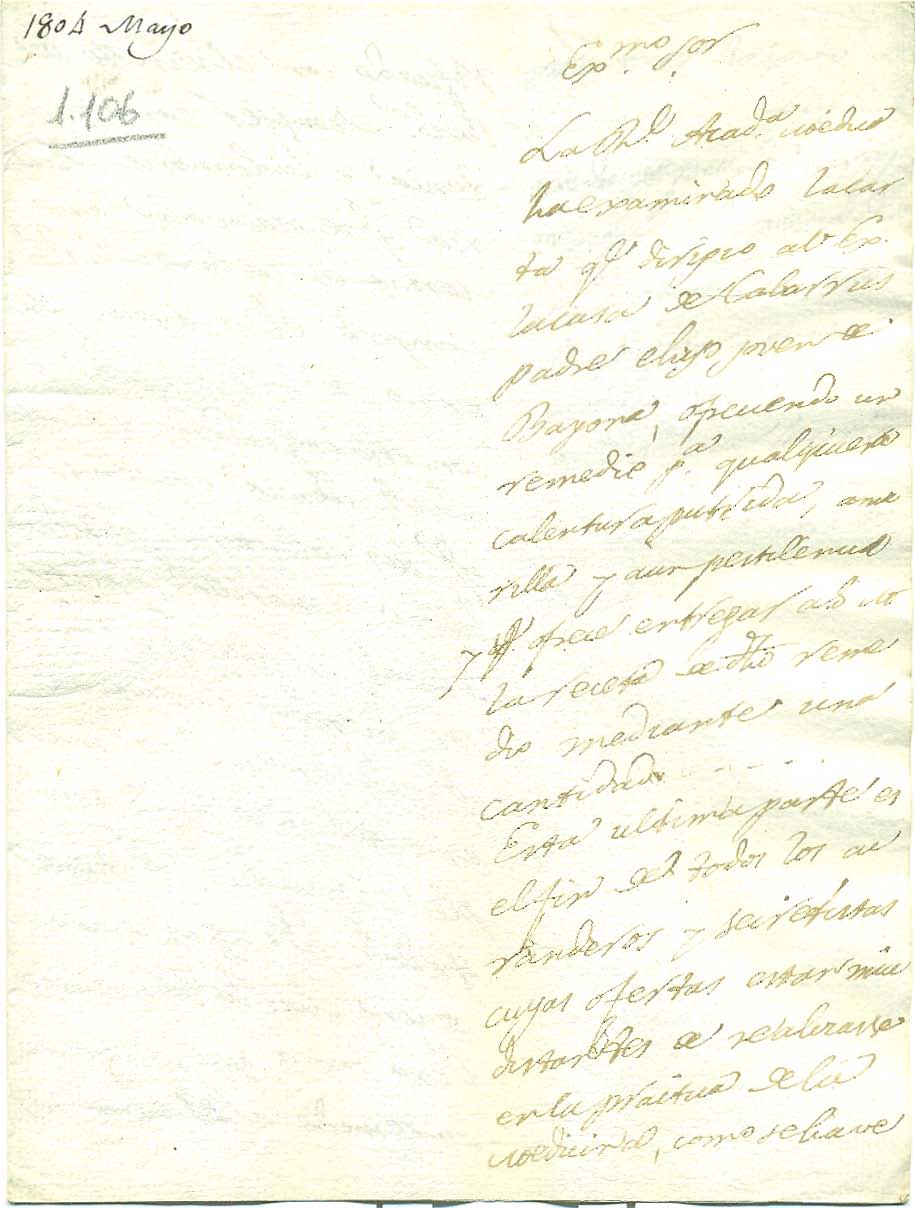 1804 Mayo
1.106
Ex.mo Sor
La Rl. Acad.a medica
ha examinado la car
ta q.e dirigio a V. Ex.
la casa de Cabarrus
padre e hijo joven de
Bayona, ofreciendo un
remedio p.a qualquiera
calentura putrida, ama
rilla y aun pestilencial
y q.e ofrece entregar a
la receta de dho reme
dio mediante una
cantidad.
Esta ultima parte es
el fin de todos los cu
randeros y secretistas
cuyas ofertas estan mui
distantes de realizarse
en la practica de la
medicina, como se ha ve